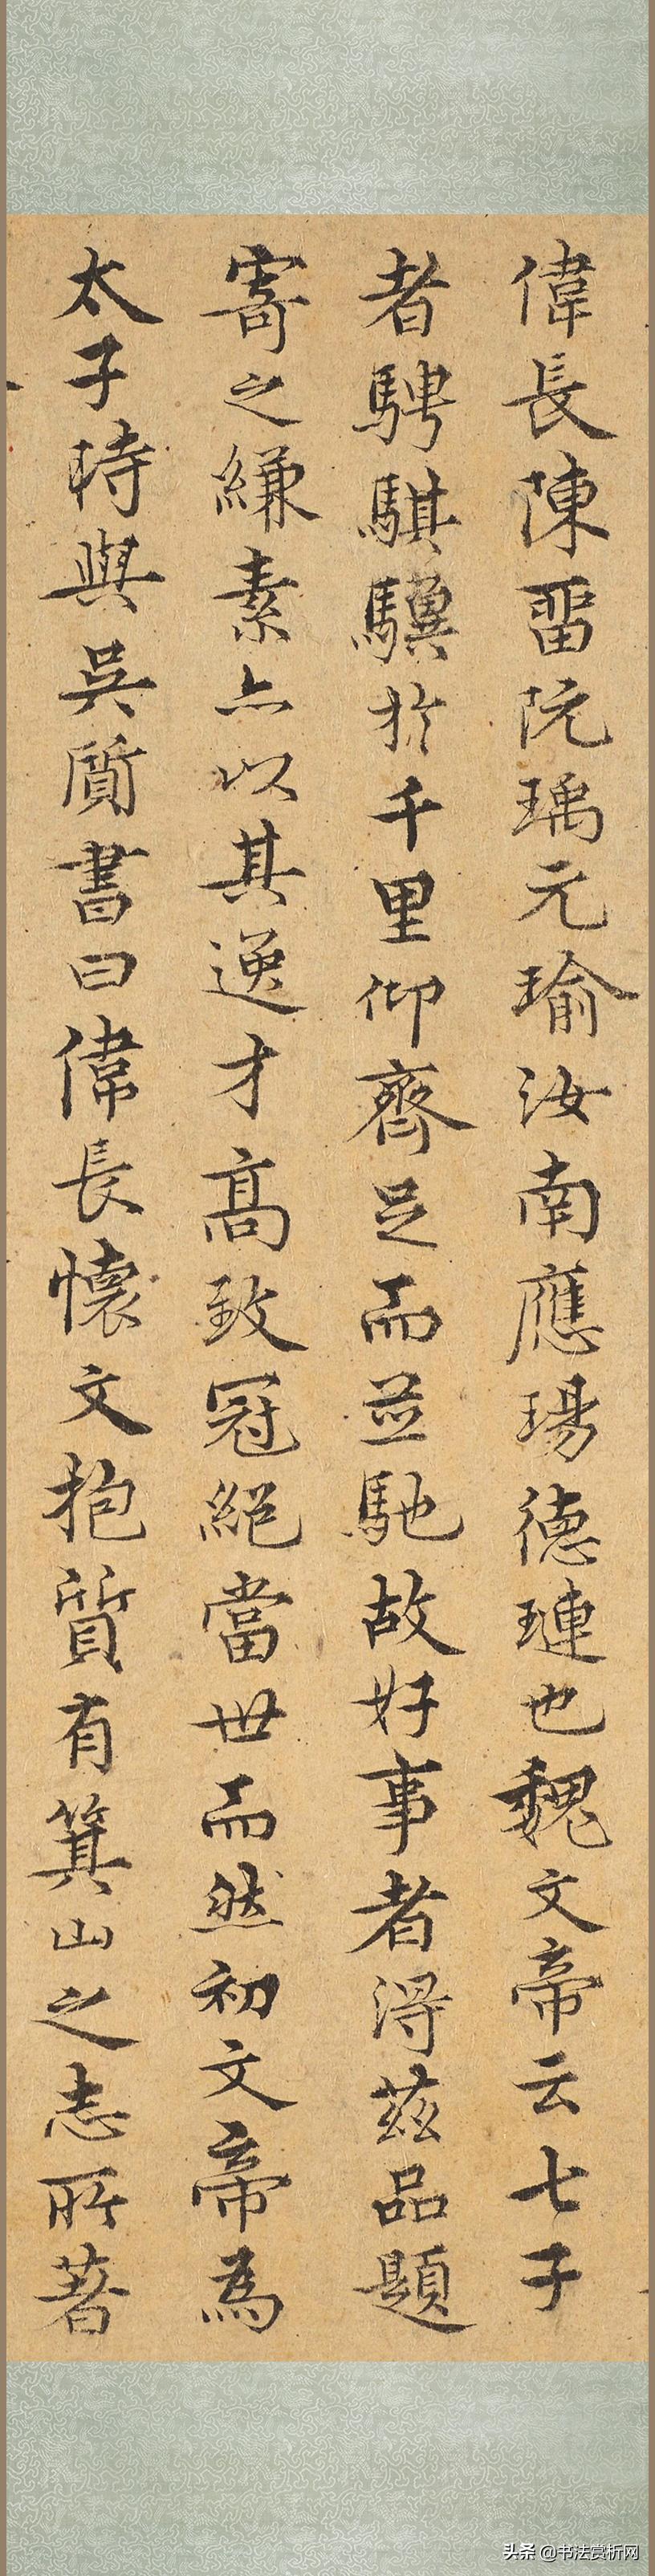 偉長陳留阮瑀元瑜汝南應瑒德璉也魏文帝云七子
者騁騏驥於千里仰齊足而並馳故好事者得茲品題
寄之縑素亦以其逸才高致冠絕當世而然初文帝為
太子時與吳質書曰偉長懷文抱質有箕山之志所著
头条 @书法赏析网